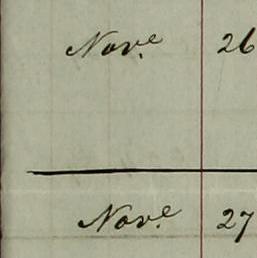 Nov.e 26
Nov.e 27